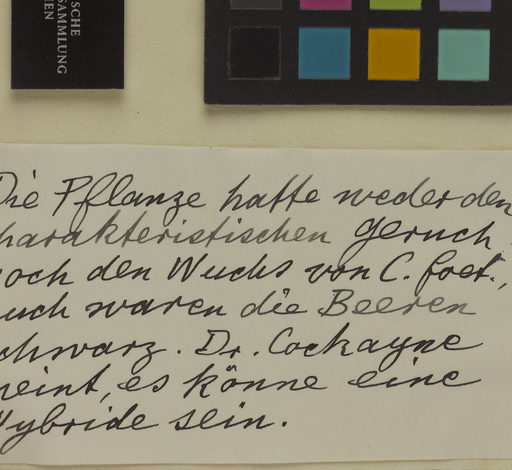 SCHE
SAMMLUNG
IEN
Die Pflanze hatte weder den
harakteristischen Geruch
och den Wuchs von C. foet.,
uch waren die Beeren
chwarz. Dr. Cockayne
eint, es könne eine
Hybride sein.